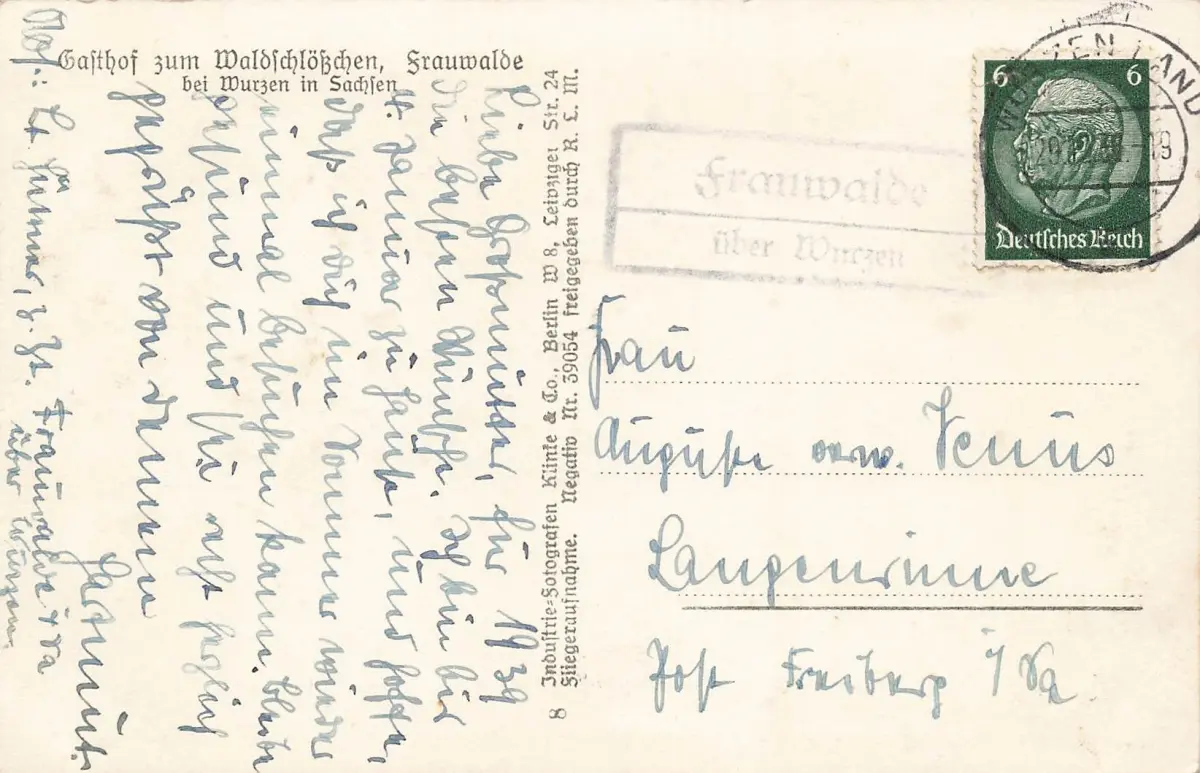 Gasthof zum Waldschlößchen, Frauwalde
bei Wurzen in Sachsen
Liebe Großmutter, für 1939
die besten Wünsche. Ich bin bis
4. Januar zu Hause, und hoffe,
daß ich dich im Sommer wieder
einmal besuchen kann. Bleibe
gesund und sei recht herzlich
gegrüßt von deinem
Hartmut.
Abs.: Lt. z. Zt. Frauwalde i/Sa
über Wurzen
8 Industrie-Fotografen Klinke & Co., Berlin W 8, Leipziger Str. 24
Fliegeraufnahme. Negativ Nr. 39054 freigegeben durch R. L. M.
Frauwalde
über Wurzen
WURZEN LAND
6 6
Deutsches Reich
Frau
Auguste verw. Venus
Langenrinne
Post Freiberg i/Sa.